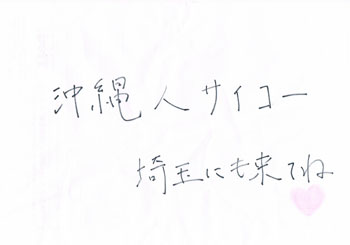 沖縄人サイコー
埼玉にも来てね